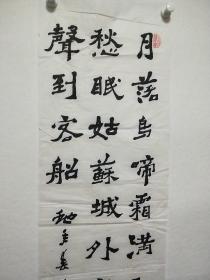 月落烏啼霜满
愁眠姑蘇城外
聲到客船